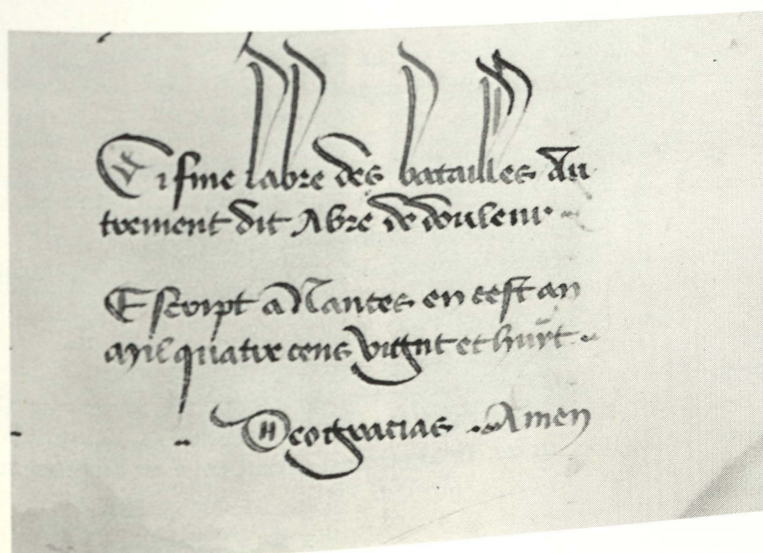 Ci fine labre des batailles Au
trement dit Abre de douleur
Escript a Nantes en cest an
mil quatre cens vignt et huyt
Deo gracias Amen